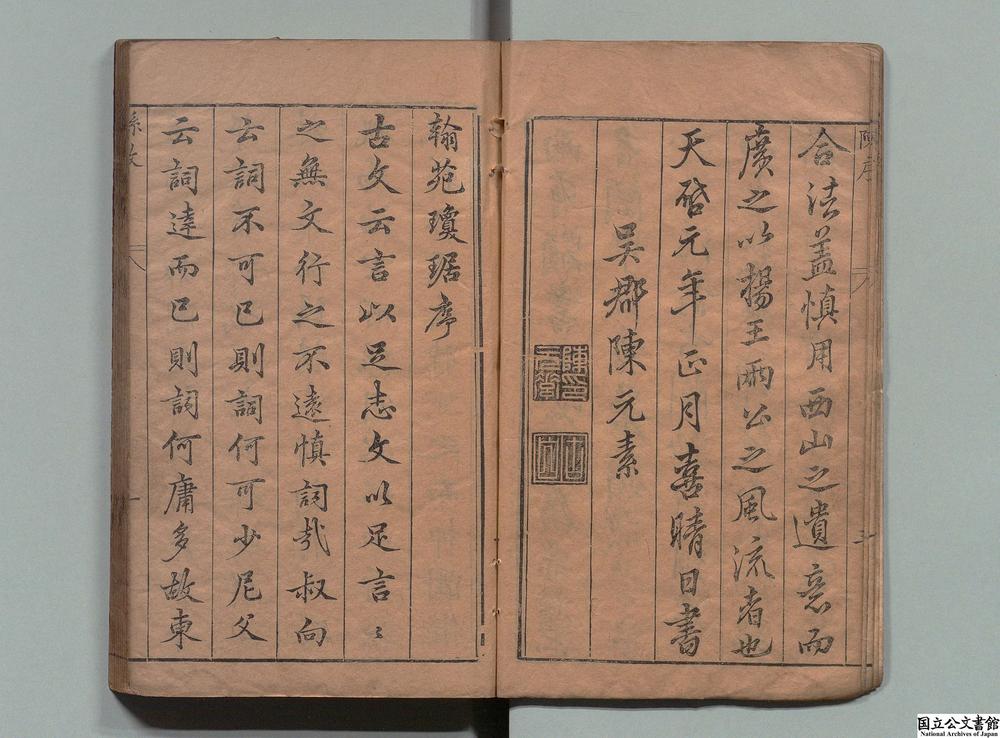 陳序
合法蓋慎用西山之遺意而
廣之以揚王兩公之風流者也
天啓元年正月喜晴日書
吳郡陳元素
翰苑瓊琚序
古文云言以足志文以足言〻
之無文行之不遠慎詞哉叔向
云詞不可已則詞何可少尼父
云詞達而已則詞何庸多故東
国立公文書館
National Archives of Japan